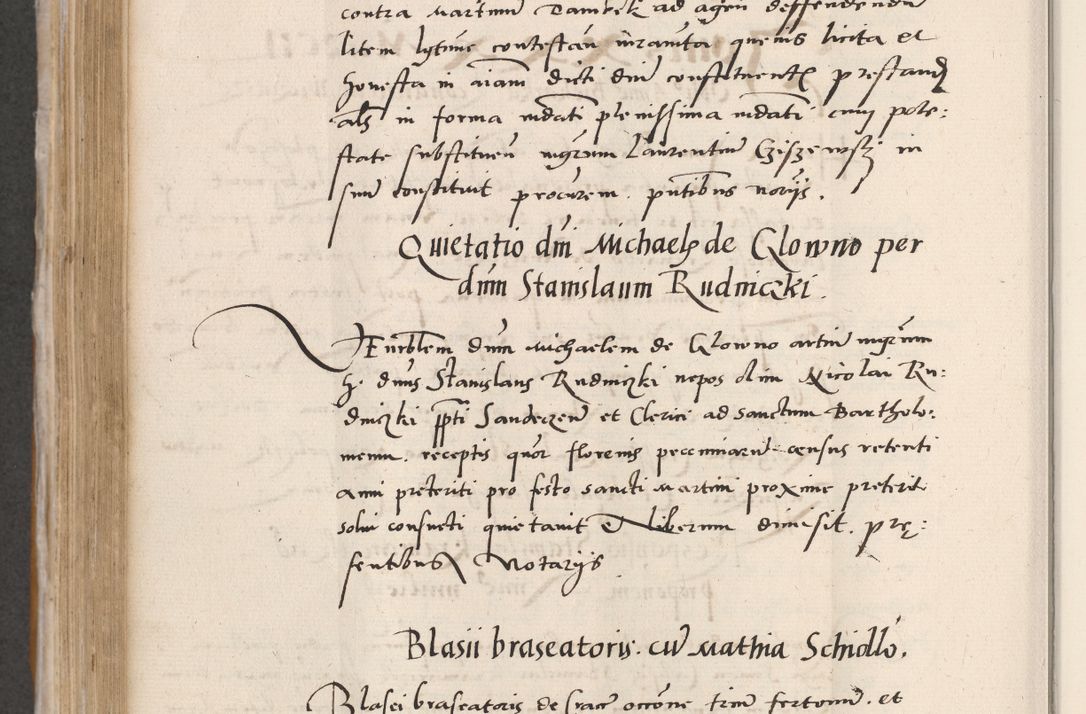 contra Martinum Dambek ad agen deffendendū
litem lgtime contestan iuranta quevis licita et
honesta in aīam dicti dni constituentꝭ prestandꝭ
als in forma mdati plenissima mdati cum pote:
state substituen mgrum Laurentium in
suū constituit procurem. pntibus noriis.
Quietatio dni Michaelꝭ de Glowno per
dnm Stanislaum Rudniczki.
Venrablem dnm Michaelem de Glowno artiū mgrum
h. dnus Stanislaus Rudniczki nepos olim Nicolai Ru:
dniczki ppti Sandeczeñ et Clerici ad sanctum Bartholo:
meum. receptis quor florenis peccuniarū census retenti
anni preteriti pro festo sancti Martini proxime preterit
solui consueti quietavit & liberum dimisit. prę:
sentibus Notariis
Blasii braseatoris. cū Mathia Schidllo.
Blasei braseatoris de Crac occōne trium fertonū. et